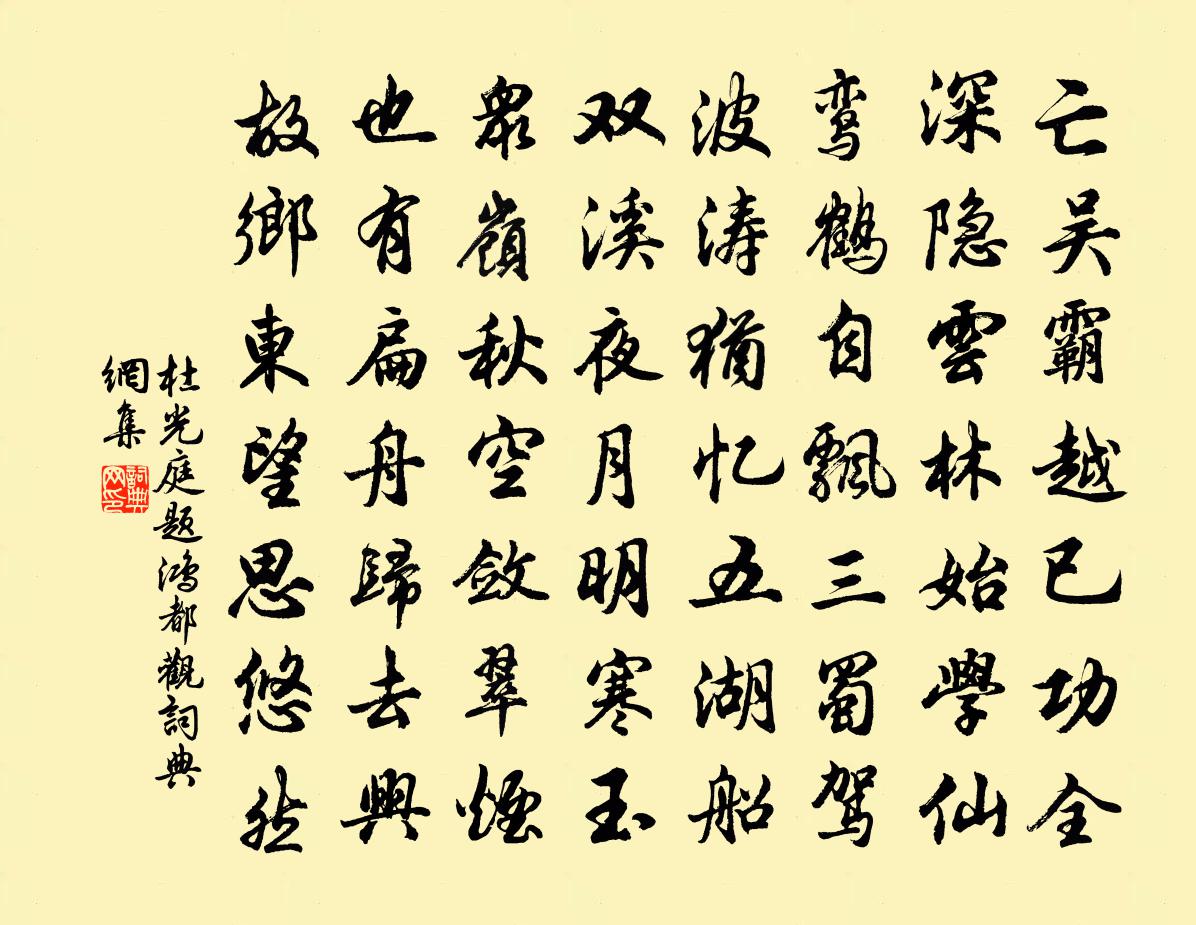 亡吴霸越已功全
深隐雲林始學仙
鸾鹤自飄三蜀驾
波涛犹忆五湖船
双溪夜月明寒玉
衆嶺秋空敛翠煙
也有扁舟歸去興
故鄉東望思悠然
杜光庭题鸿都觀詞典
網集
詞典
网印